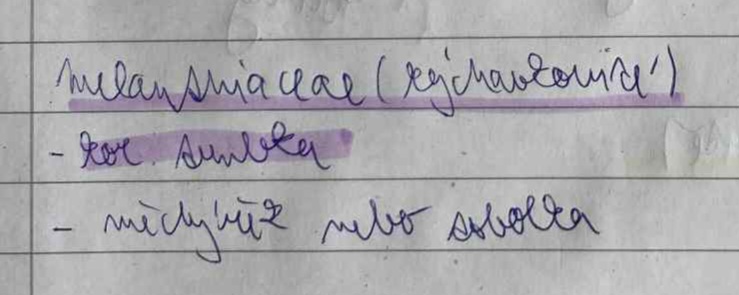 melanthiaceae (kýchavkovité)
- kor. trubka
- měchýřek nebo tobolka